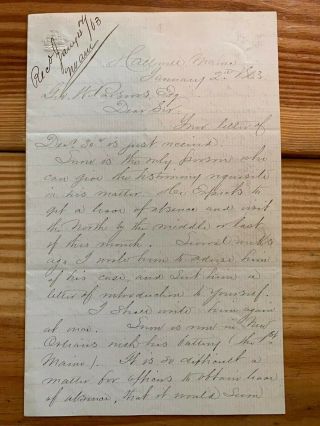 Rec'd Jany 5 /63
Maine
Hallowell Maine
January 2nd 1863
Geo. W. Esq
Dear Sir.
Your letter of
Dec. 30th is just received.
is the only person who
can give the testimony requisite
in his matter. He expects to
get a leave of absence and visit
the North by the middle or last
of this month. Several weeks
ago I wrote him to advise him
of his case, and sent him a
letter of introduction to yourself.
I shall write him again
at once. is now in New
Orleans with his Battery (the 1st
Maine). It is so difficult a
matter for officers to obtain leave
of absence, that it would seem